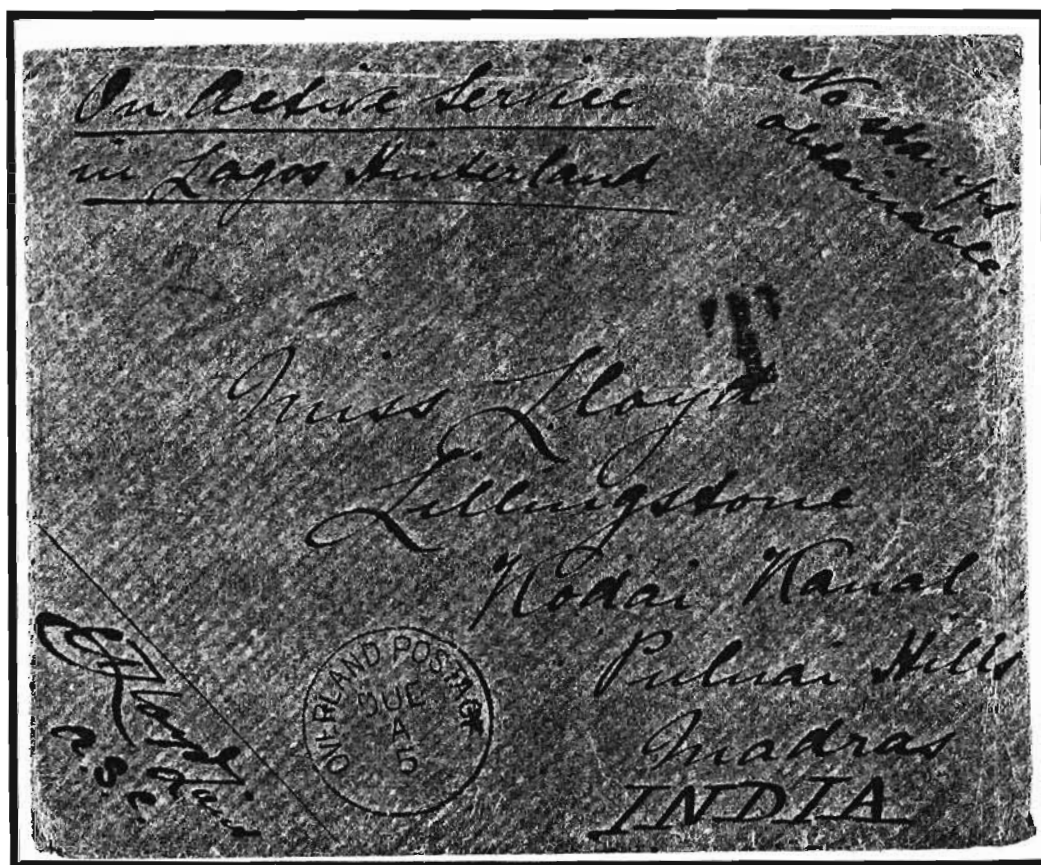 On Active Service
in Lagos Hinterland
No
stamps
obtainable
T
Miss Lloyd
Lillingstone
Kodai Kanal
Pulnai Hills
Madras
INDIA
OVERLAND POSTAGE
DUE
A
5